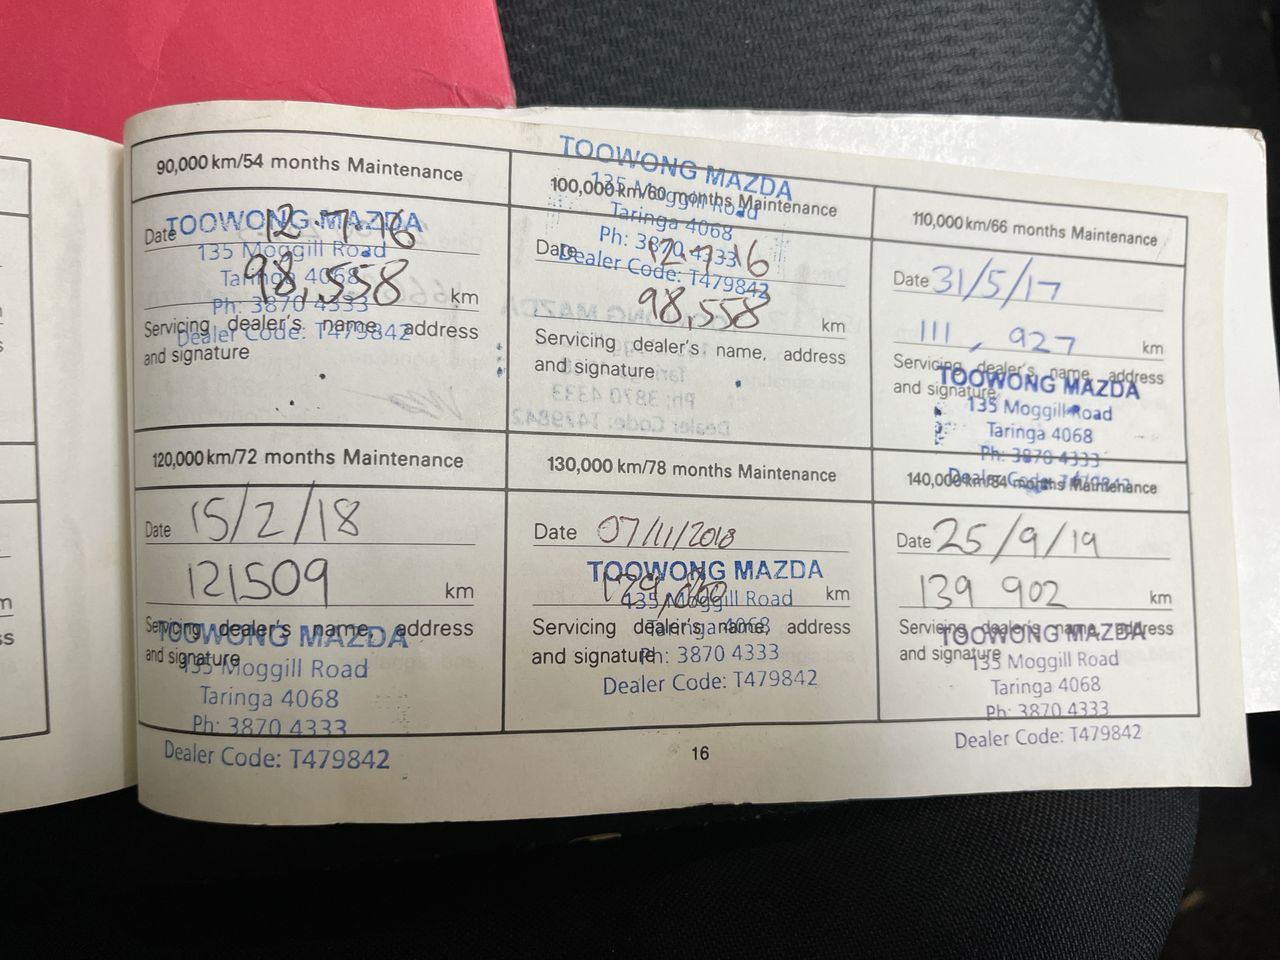 90,000 km/54 months Maintenance
TOOWONG MAZDA
Date 12.7.16
135 Moggill Road
Taringa 4068
98,558 km
Ph: 3870 4333
Servicing dealer's name, address
Dealer Code: T479842
and signature
TOOWONG MAZDA
135 Moggill Road
100,000 km/60 months Maintenance
Taringa 4068
Ph: 3870 4333
Date 12.7.16
Dealer Code: T479842
98,558 km
Servicing dealer's name, address
and signature
110,000 km/66 months Maintenance
Date 31/5/17
111, 927 km
Servicing dealer's name, address
and signature
TOOWONG MAZDA
135 Moggill Road
Taringa 4068
Ph: 3870 4333
Dealer Code: T479842
120,000 km/72 months Maintenance
Date 15/2/18
121509 km
Servicing dealer's name, address
TOOWONG MAZDA
and signature
135 Moggill Road
Taringa 4068
Ph: 3870 4333
Dealer Code: T479842
130,000 km/78 months Maintenance
Date 07/11/2018
TOOWONG MAZDA
km
135 Moggill Road
Servicing dealer's name, address
Taringa 4068
and signature
Ph: 3870 4333
Dealer Code: T479842
140,000 km/84 months Maintenance
Date 25/9/19
139 902 km
Servicing dealer's name, address
TOOWONG MAZDA
and signature
135 Moggill Road
Taringa 4068
Ph: 3870 4333
Dealer Code: T479842
16